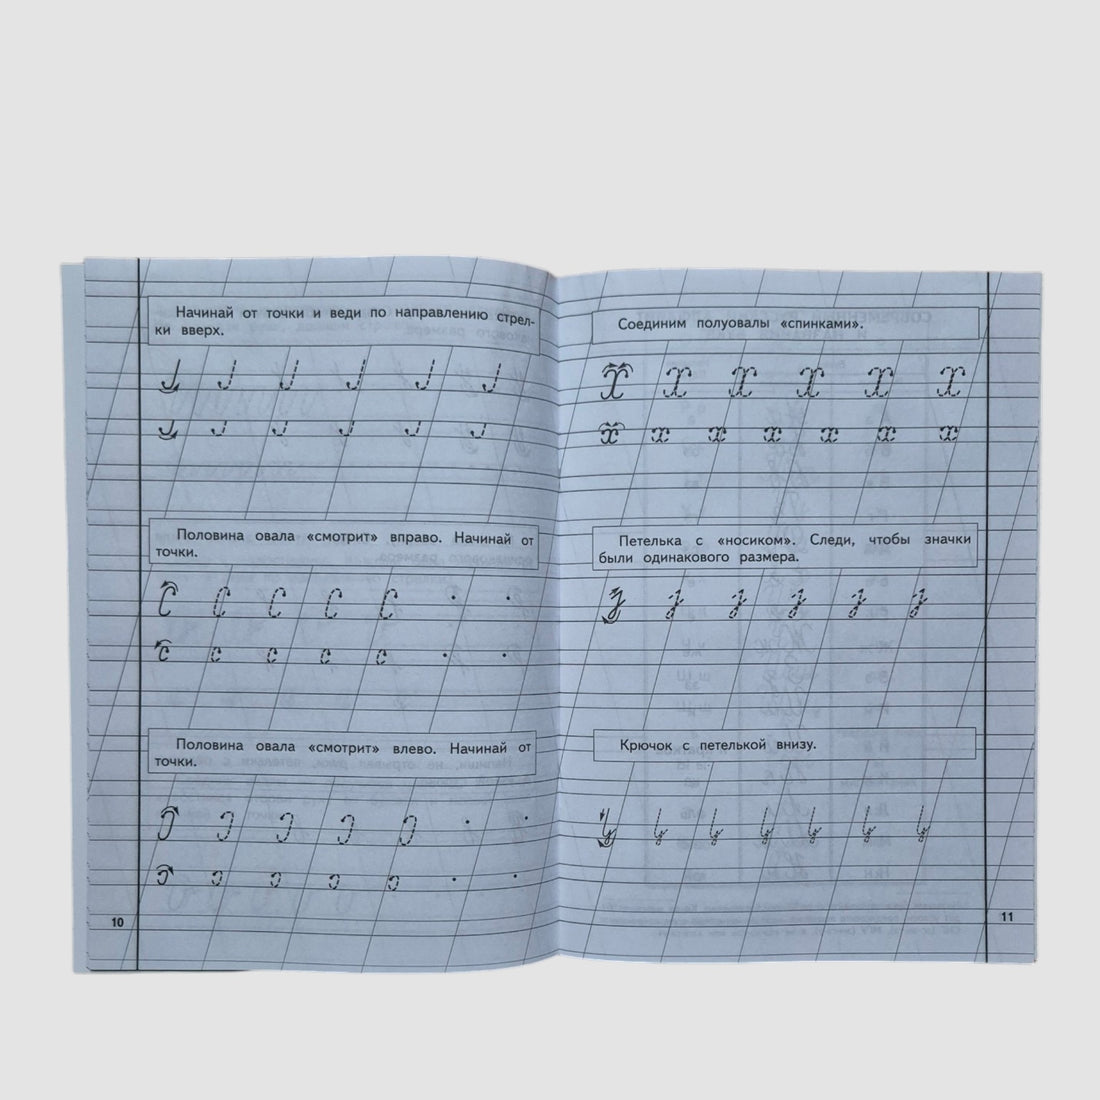 Начинай от точки и веди по направлению стрел-
ки вверх.
Половина овала «смотрит» вправо. Начинай от
точки.
Половина овала «смотрит» влево. Начинай от
точки.
10
Соединим полуовалы «спинками».
Петелька с «носиком». Следи, чтобы значки
были одинакового размера.
Крючок с петелькой внизу.
11